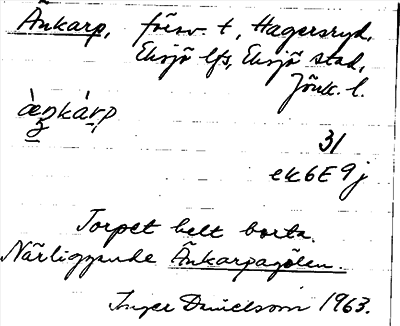 Änkarp, försv. t, Hagersryd,
Eksjö lfs, Eksjö stad,
Jönk. l.
æ̀ŋkàrp
31
ek 6E 9j
Torpet helt borta.
Närliggande Änkarpagölen.
Inger Danielsson 1963.